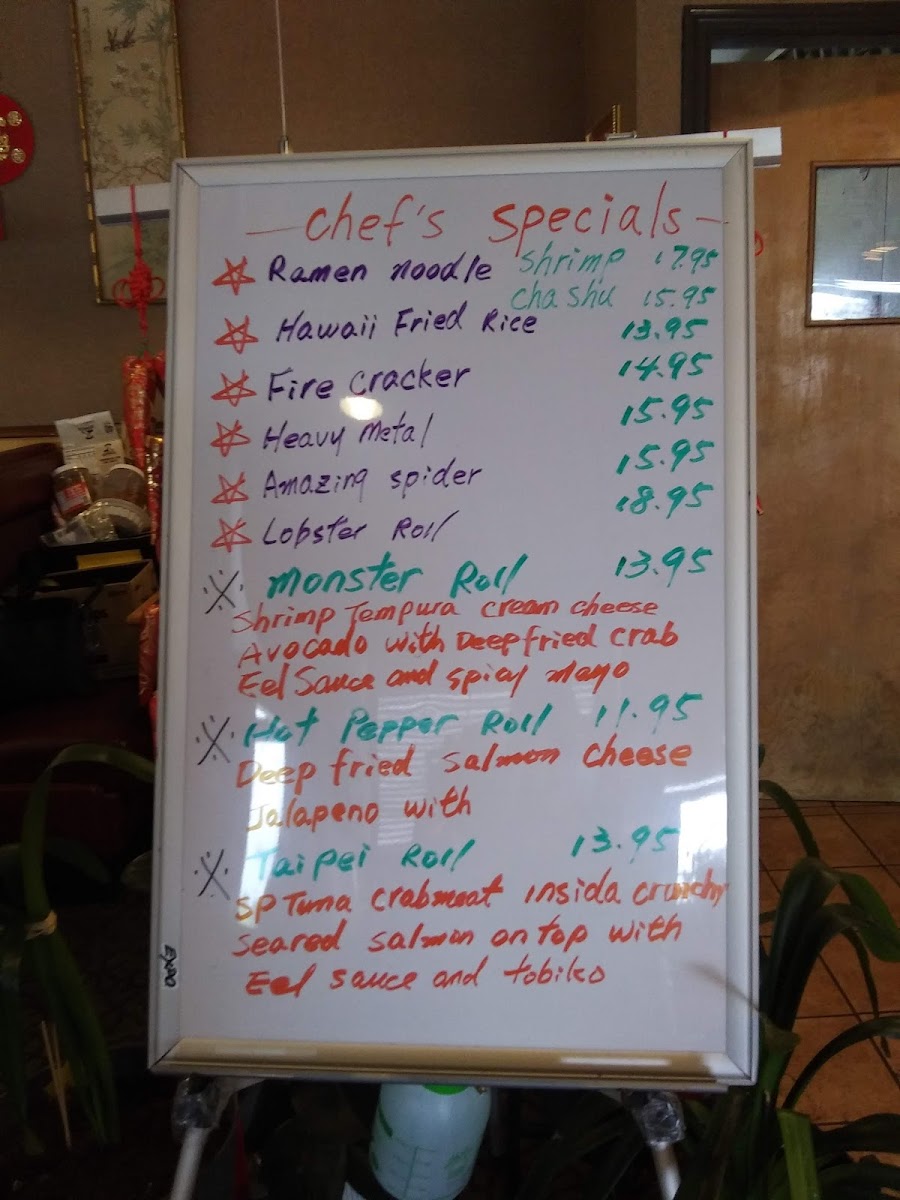 Chef's Specials
Ramen noodle shrimp 17.95
cha shu 15.95
Hawaii Fried Rice 13.95
Fire cracker 14.95
Heavy metal 15.95
Amazing spider 15.95
Lobster Roll 18.95
Monster Roll 13.95
Shrimp Tempura cream cheese
Avocado with Deep fried crab
Eel Sauce and spicy mayo
Hot Pepper Roll 11.95
Deep fried salmon cheese
Jalapeno with
Taipei Roll 13.95
SP Tuna crabmeat insida crunchy
seared salmon on top with
Eel sauce and tobiko
EXPO